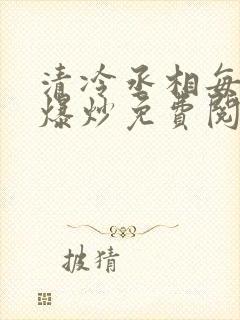 清冷丞相每
爆炒免費閱
披猜